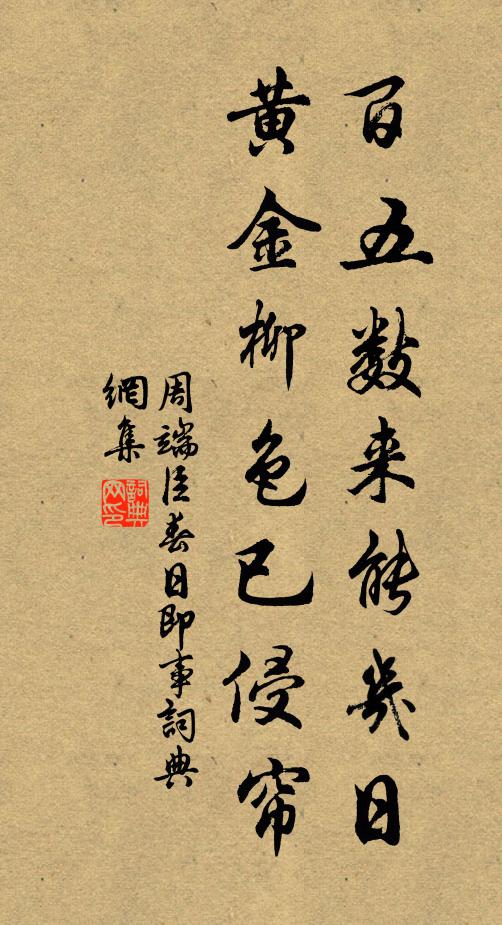 百五数来能几日
黄金柳色已侵帘
周端臣春日即事詞典
網集
詞典網印